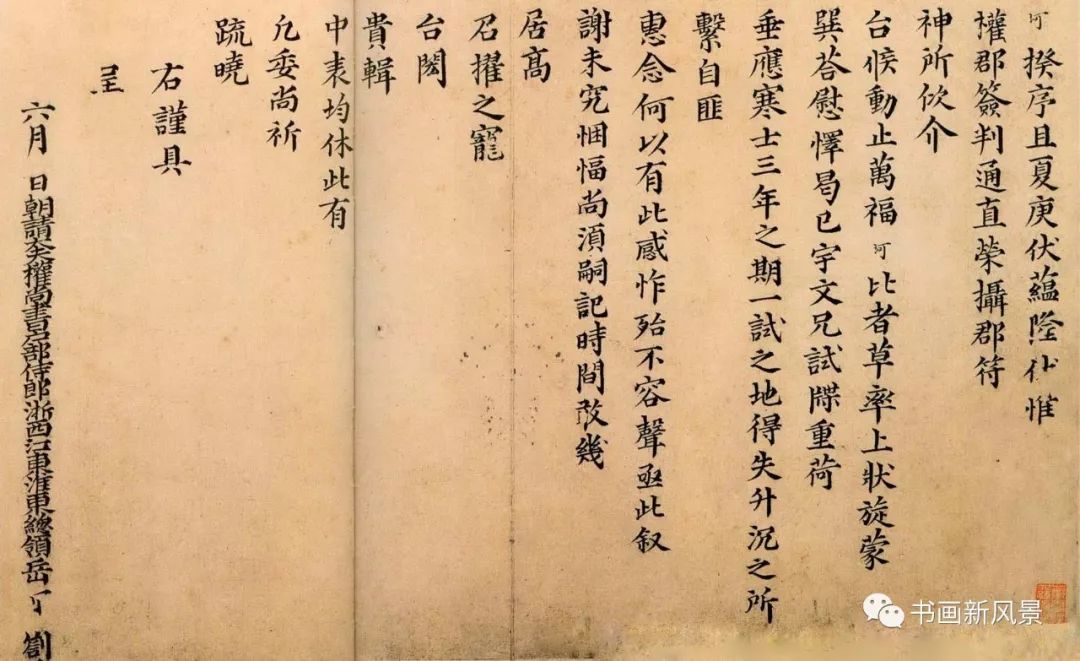 珂揆序且夏庚伏蘊隆仆惟
權郡簽判通直榮攝郡符
神所攸介
台候動止萬福珂比者草率上狀旋蒙
巽荅慰懌曷已宇文兄試牒重荷
垂應寒士三年之期一試之地得失升沉之所
繫自匪
惠念何以有此感怍殆不容聲亟此叙
謝未究悃愊尚須嗣記時間敢幾
居高
召擢之寵
台閤
貴輯
中表均休此有
凢委尚祈
疏曉
右謹具
呈
六月 日朝請大夫權尚書户部侍郎浙西江東淮東總領岳珂劄
书画新风景